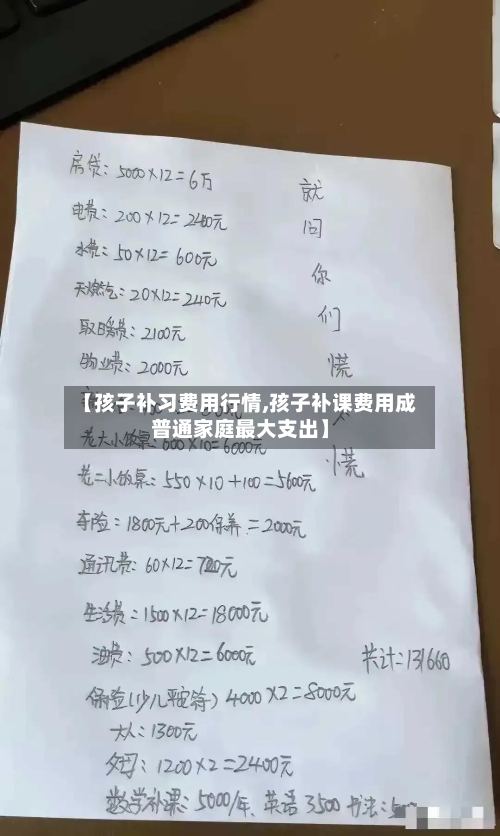 房贷: 5000×12=6万
电费: 200×12=2400元
水费: 50×12=600元
天燃气: 20×12=240元
取暖费: 2100元
物业费: 2000元
就
问
你
们
慌
【孩子补习费用行情,孩子补课费用成
普通家庭最大支出】
慌
老大小饭桌: 600×10=6000元
老二小饭桌: 550×10+100=5600元
车险: 1800元+200保养=2000元
通讯费: 60×12=720元
生活费: 1500×12=18000元
油费: 500×12=6000元
共计=131660
保险(少儿平安符) 4000×2=8000元
大人: 1300元
父母: 1200×2=2400元
数学补课: 5000/年、英语 3500 书法: